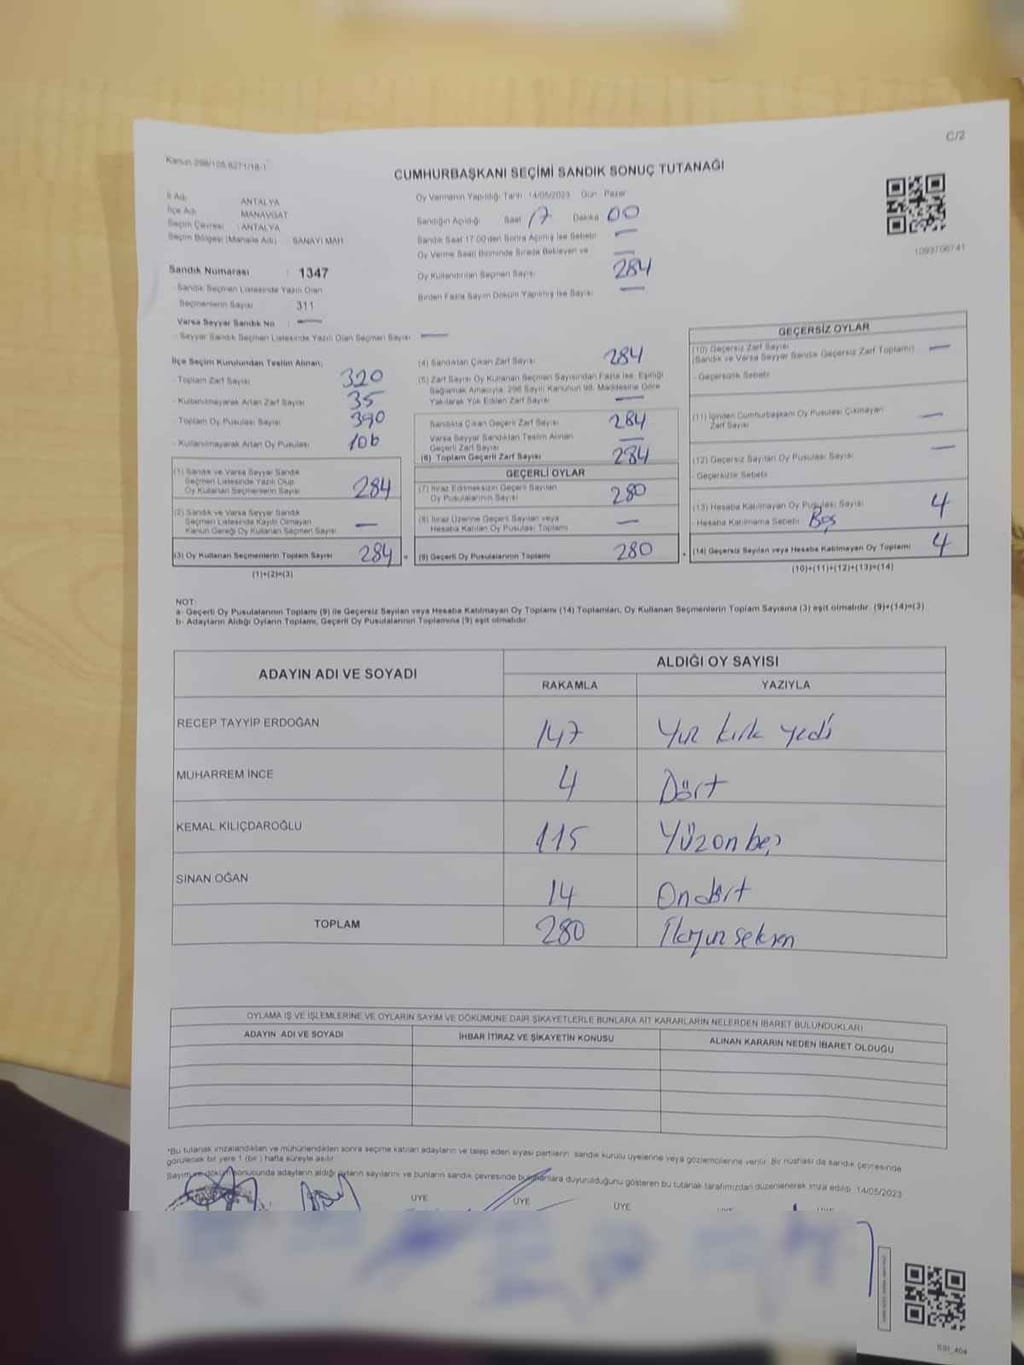 C/2
Kanun 298/105,6271/18-1
CUMHURBAŞKANI SEÇİMİ SANDIK SONUÇ TUTANAĞI
İl Adı : ANTALYA
İlçe Adı : MANAVGAT
Seçim Çevresi : ANTALYA
Seçim Bölgesi (Mahalle Adı) : SANAYİ MAH.
Sandık Numarası : 1347
- Sandık Seçmen Listesinde Yazılı Olan
Seçmenlerin Sayısı : 311
Varsa Seyyar Sandık No : —
- Seyyar Sandık Seçmen Listesinde Yazılı Olan Seçmen Sayısı —
Oy Vermenin Yapıldığı Tarih 14/05/2023 Gün Pazar
Sandığın Açıldığı Saat 17 Dakika 00
Sandık Saat 17:00'den Sonra Açılmış İse Sebebi —
Oy Verme Saati Bitiminde Sırada Bekleyen ve —
Oy Kullandırılan Seçmen Sayısı 284
Birden Fazla Sayım Döküm Yapılmış İse Sayısı —
1093706741
İlçe Seçim Kurulundan Teslim Alınan;
- Toplam Zarf Sayısı 320
- Kullanılmayarak Artan Zarf Sayısı 35
- Toplam Oy Pusulası Sayısı 390
- Kullanılmayarak Artan Oy Pusulası 106
(1) Sandık ve Varsa Seyyar Sandık
Seçmen Listesinde Yazılı Olup
Oy Kullanan Seçmenlerin Sayısı 284
(2) Sandık ve Varsa Seyyar Sandık
Seçmen Listesinde Kayıtlı Olmayan
Kanun Gereği Oy Kullanan Seçmen Sayısı —
(3) Oy Kullanan Seçmenlerin Toplam Sayısı 284
(1)+(2)=(3)
(4) Sandıktan Çıkan Zarf Sayısı 284
(5) Zarf Sayısı Oy Kullanan Seçmen Sayısından Fazla İse, Eşitliği
Sağlamak Amacıyla, 298 Sayılı Kanunun 98. Maddesine Göre
Yakılarak Yok Edilen Zarf Sayısı —
Sandıkta Çıkan Geçerli Zarf Sayısı 284
Varsa Seyyar Sandıktan Teslim Alınan
Geçerli Zarf Sayısı —
(6) Toplam Geçerli Zarf Sayısı 284
GEÇERLİ OYLAR
(7) İtiraz Edilmeksizin Geçerli Sayılan
Oy Pusulalarının Sayısı 280
(8) İtiraz Üzerine Geçerli Sayılan veya
Hesaba Katılan Oy Pusulaları Toplamı —
(9) Geçerli Oy Pusulalarının Toplamı 280
GEÇERSİZ OYLAR
(10) Geçersiz Zarf Sayısı —
(Sandık ve Varsa Seyyar Sandık Geçersiz Zarf Toplamı)
- Geçersizlik Sebebi
(11) İçinden Cumhurbaşkanı Oy Pusulası Çıkmayan
Zarf Sayısı —
(12) Geçersiz Sayılan Oy Pusulası Sayısı —
- Geçersizlik Sebebi
(13) Hesaba Katılmayan Oy Pusulası Sayısı 4
- Hesaba Katılmama Sebebi Boş
(14) Geçersiz Sayılan veya Hesaba Katılmayan Oy Toplamı 4
(10)+(11)+(12)+(13)=(14)
NOT:
a- Geçerli Oy Pusulalarının Toplamı (9) ile Geçersiz Sayılan veya Hesaba Katılmayan Oy Toplamı (14) Toplamları, Oy Kullanan Seçmenlerin Toplam Sayısına (3) eşit olmalıdır. (9)+(14)=(3)
b- Adayların Aldığı Oyların Toplamı, Geçerli Oy Pusulalarının Toplamına (9) eşit olmalıdır.
ADAYIN ADI VE SOYADI ALDIĞI OY SAYISI
RAKAMLA YAZIYLA
RECEP TAYYİP ERDOĞAN 147 Yüz kırk yedi
MUHARREM İNCE 4 Dört
KEMAL KILIÇDAROĞLU 115 Yüzonbeş
SİNAN OĞAN 14 Ondört
TOPLAM 280 İkiyüz seksen
OYLAMA İŞ VE İŞLEMLERİNE VE OYLARIN SAYIM VE DÖKÜMÜNE DAİR ŞİKAYETLERLE BUNLARA AİT KARARLARIN NELERDEN İBARET BULUNDUKLARI
ADAYIN ADI VE SOYADI İHBAR İTİRAZ VE ŞİKAYETİN KONUSU ALINAN KARARIN NEDEN İBARET OLDUĞU
*Bu tutanak imzalandıktan ve mühürlendikten sonra seçime katılan adayların ve talep eden siyasi partilerin sandık kurulu üyelerine veya gözlemcilerine verilir. Bir nüshası da sandık çevresinde
görülecek bir yere 1 (bir) hafta süreyle asılır.
Sayım ve döküm sonucunda adayların aldığı oyların sayılarını ve bunların sandık çevresinde bulunanlara duyurulduğunu gösteren bu tutanak tarafımızdan düzenlenerek imza edildi. 14/05/2023
ÜYE ÜYE ÜYE